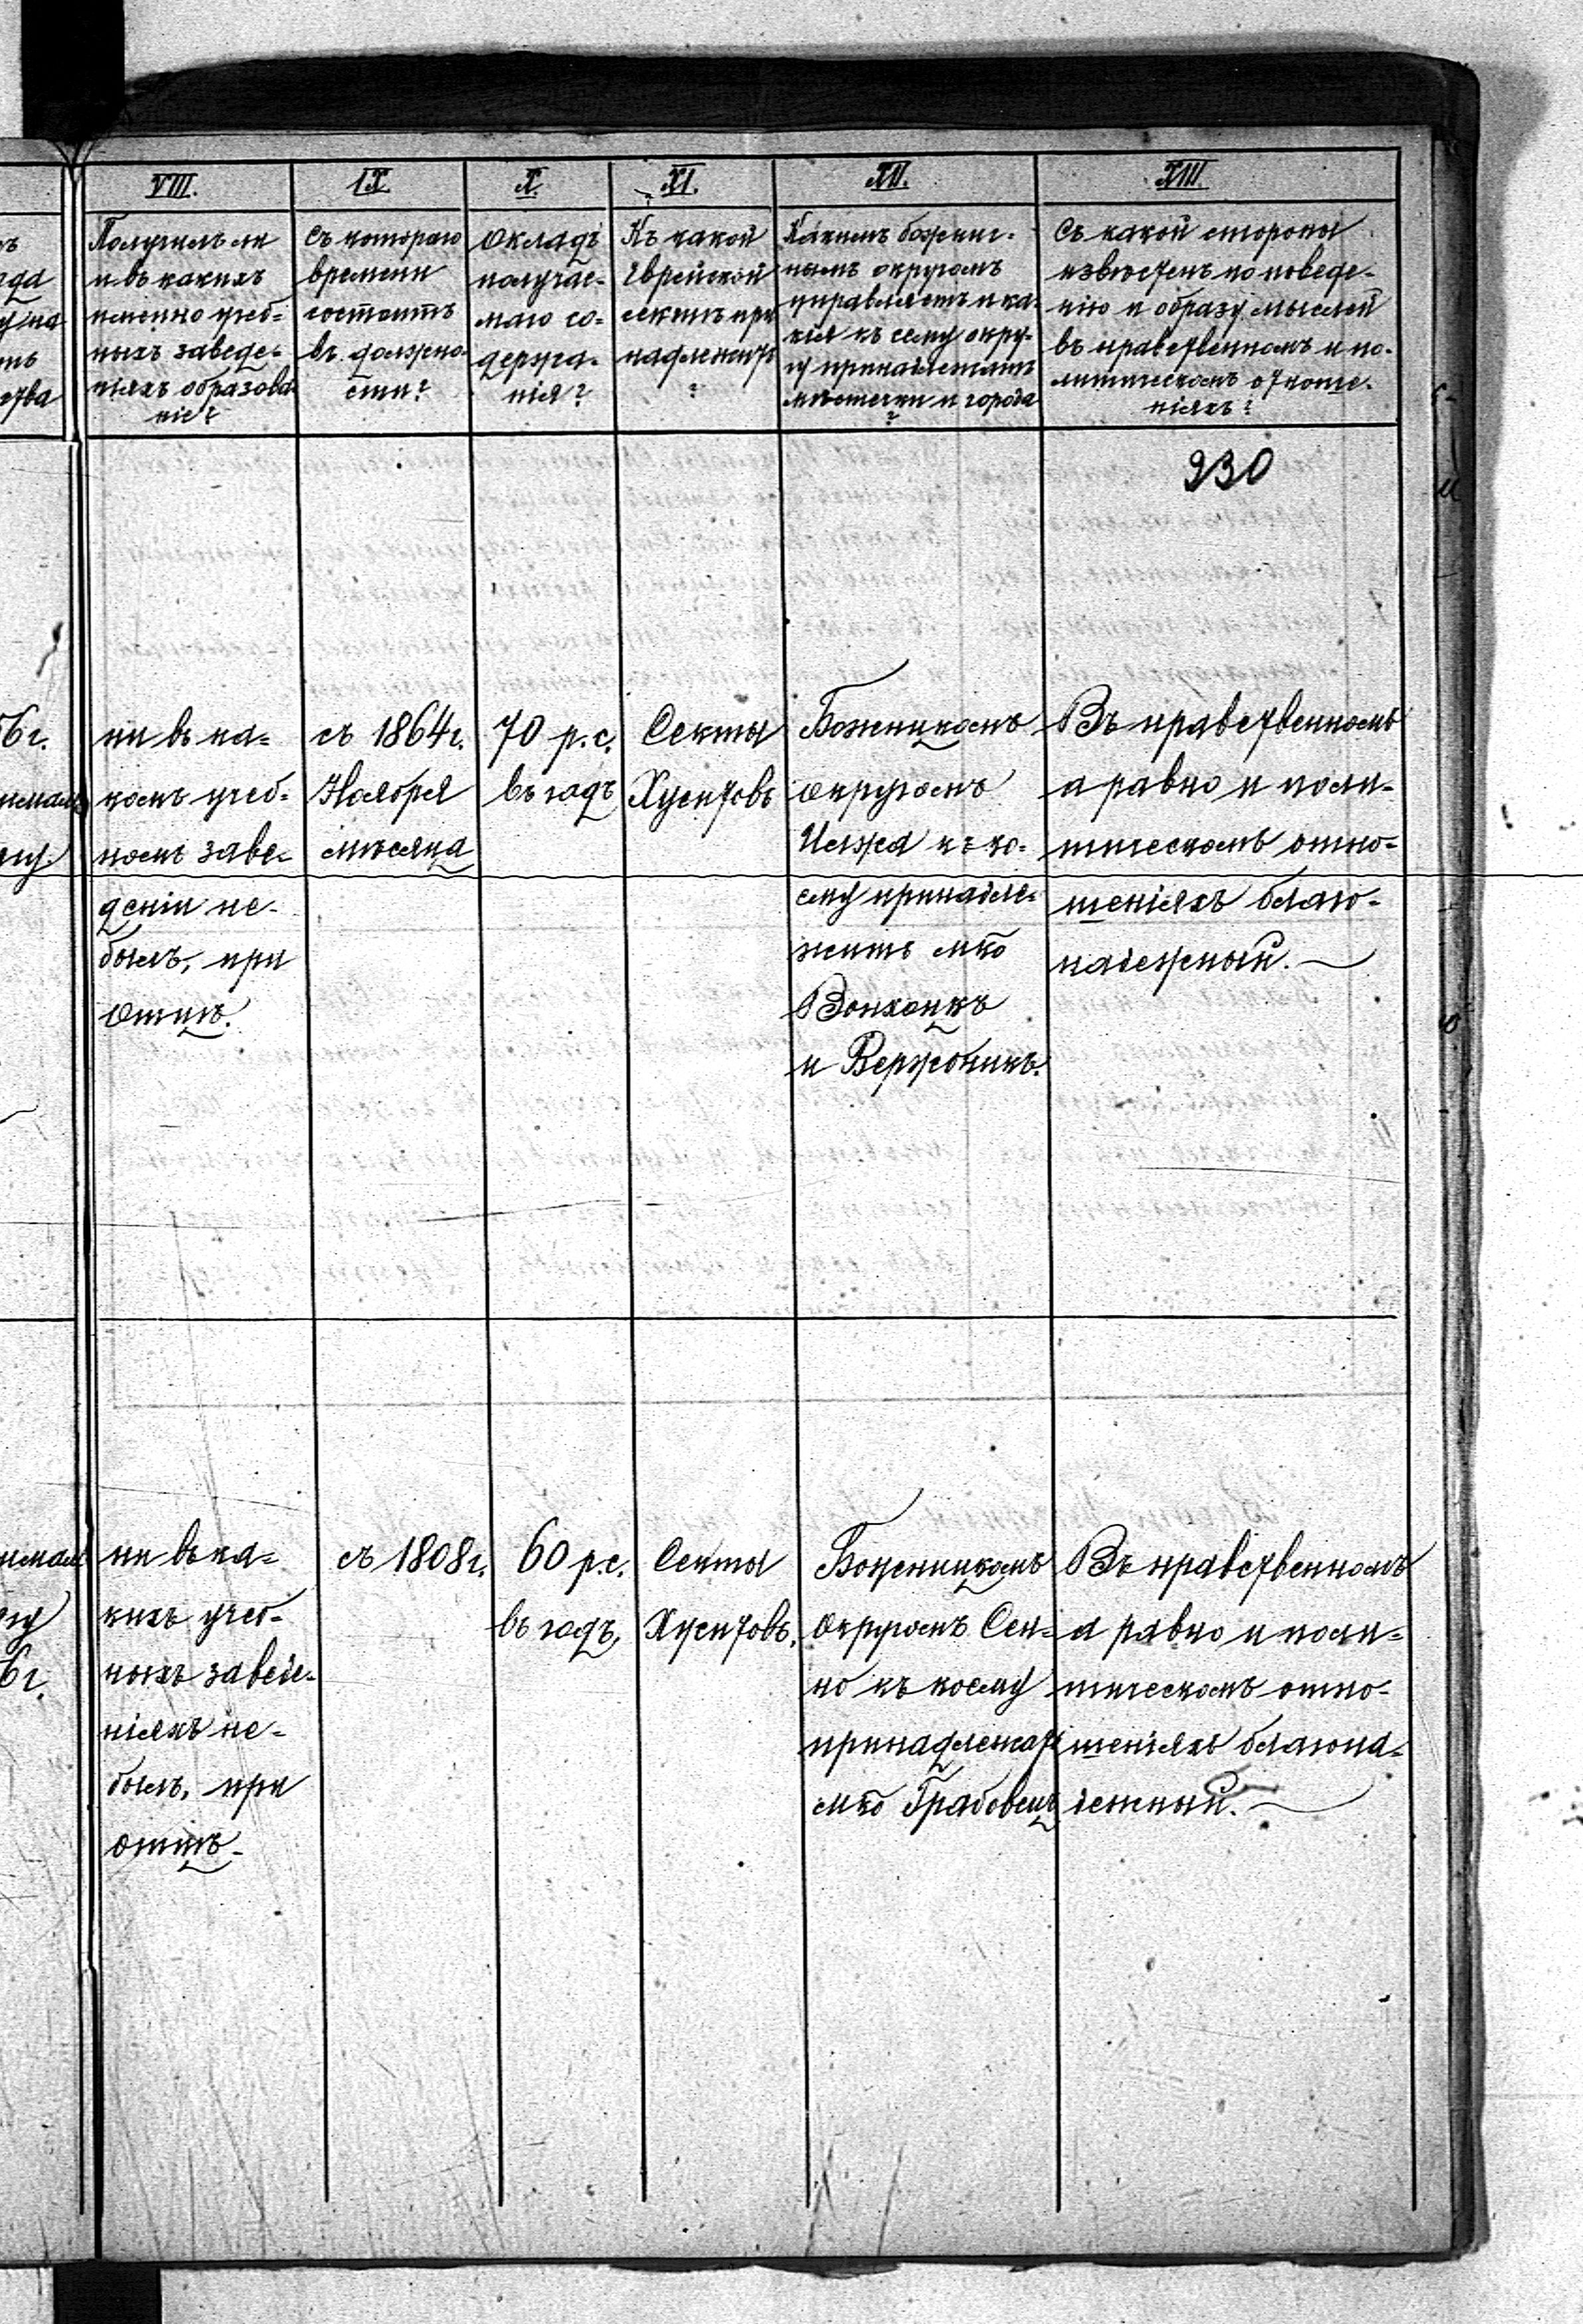 VIII.
Получилъ ли
и въ какихъ
именно учеб-
ныхъ заведе-
ніяхъ образова
ніе?
IX
Съ котораго
времени
состоитъ
въ должно-
сти?
X.
Окладъ
получае-
маго со-
держа-
нія?
XI.
Къ какой
Еврейской
сектѣ при
надлежитъ
?
XII.
Какимъ божнич-
нымъ округомъ
управляетъ и ка-
кія къ сему окру-
гу принадлежатъ
мѣстечки и города
?
XIII
Съ какой стороны
извѣстенъ по поведе-
нію и образу мыслей
въ нравственномъ и по-
литическомъ отноше-
ніяхъ?
230
ни въ ка-
комъ учеб-
номъ заве-
деніи не-
былъ, при
Отцѣ.
съ 1864 г.
Ноября
мѣсяца
70 р. с.
въ годъ
Секты
Хуситовъ
Божницкомъ
округомъ
Илжа къ ко-
ему принадле-
житъ мко
Вонхоцкъ
и Вержбникъ.
Въ нравственномъ
а равно и поли-
тическомъ отно-
шеніяхъ благо-
надежный.
ни въ ка-
кихъ учеб-
ныхъ заведе-
ніяхъ не-
былъ, при
отцѣ.
съ 1808 г.
60 р. с.
въ годъ,
Секты
Хуситовъ.
Боженицкомъ
округомъ Сен-
но къ коему
принадлежатъ
мко Грабовецъ
Въ нравственномъ
а равно и поли-
тическомъ отно-
шеніяхъ благона-
дежный.